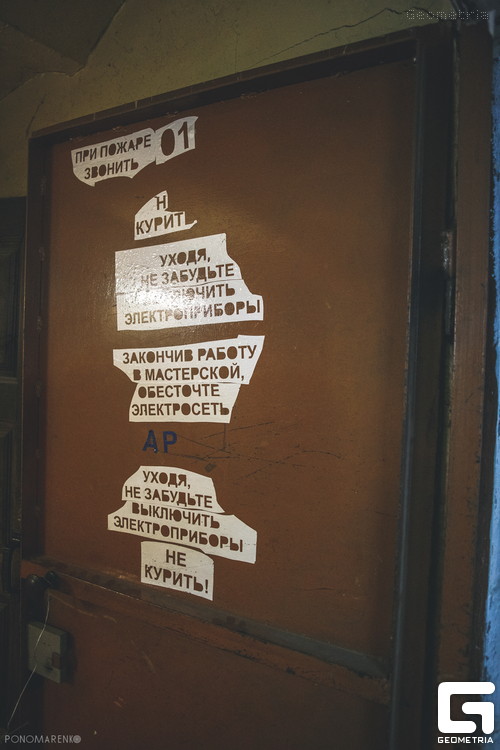 Geometria
ПРИ ПОЖАРЕ 01
ЗВОНИТЬ
Н
КУРИТ
УХОДЯ,
НЕ ЗАБУДЬТЕ
ВЫКЛЮЧИТЬ
ЭЛЕКТРОПРИБОРЫ
ЗАКОНЧИВ РАБОТУ
В МАСТЕРСКОЙ,
ОБЕСТОЧТЕ
ЭЛЕКТРОСЕТЬ
АР
УХОДЯ,
НЕ ЗАБУДЬТЕ
ВЫКЛЮЧИТЬ
ЭЛЕКТРОПРИБОРЫ
НЕ
КУРИТЬ!
PONOMARENKO
GEOMETRIA